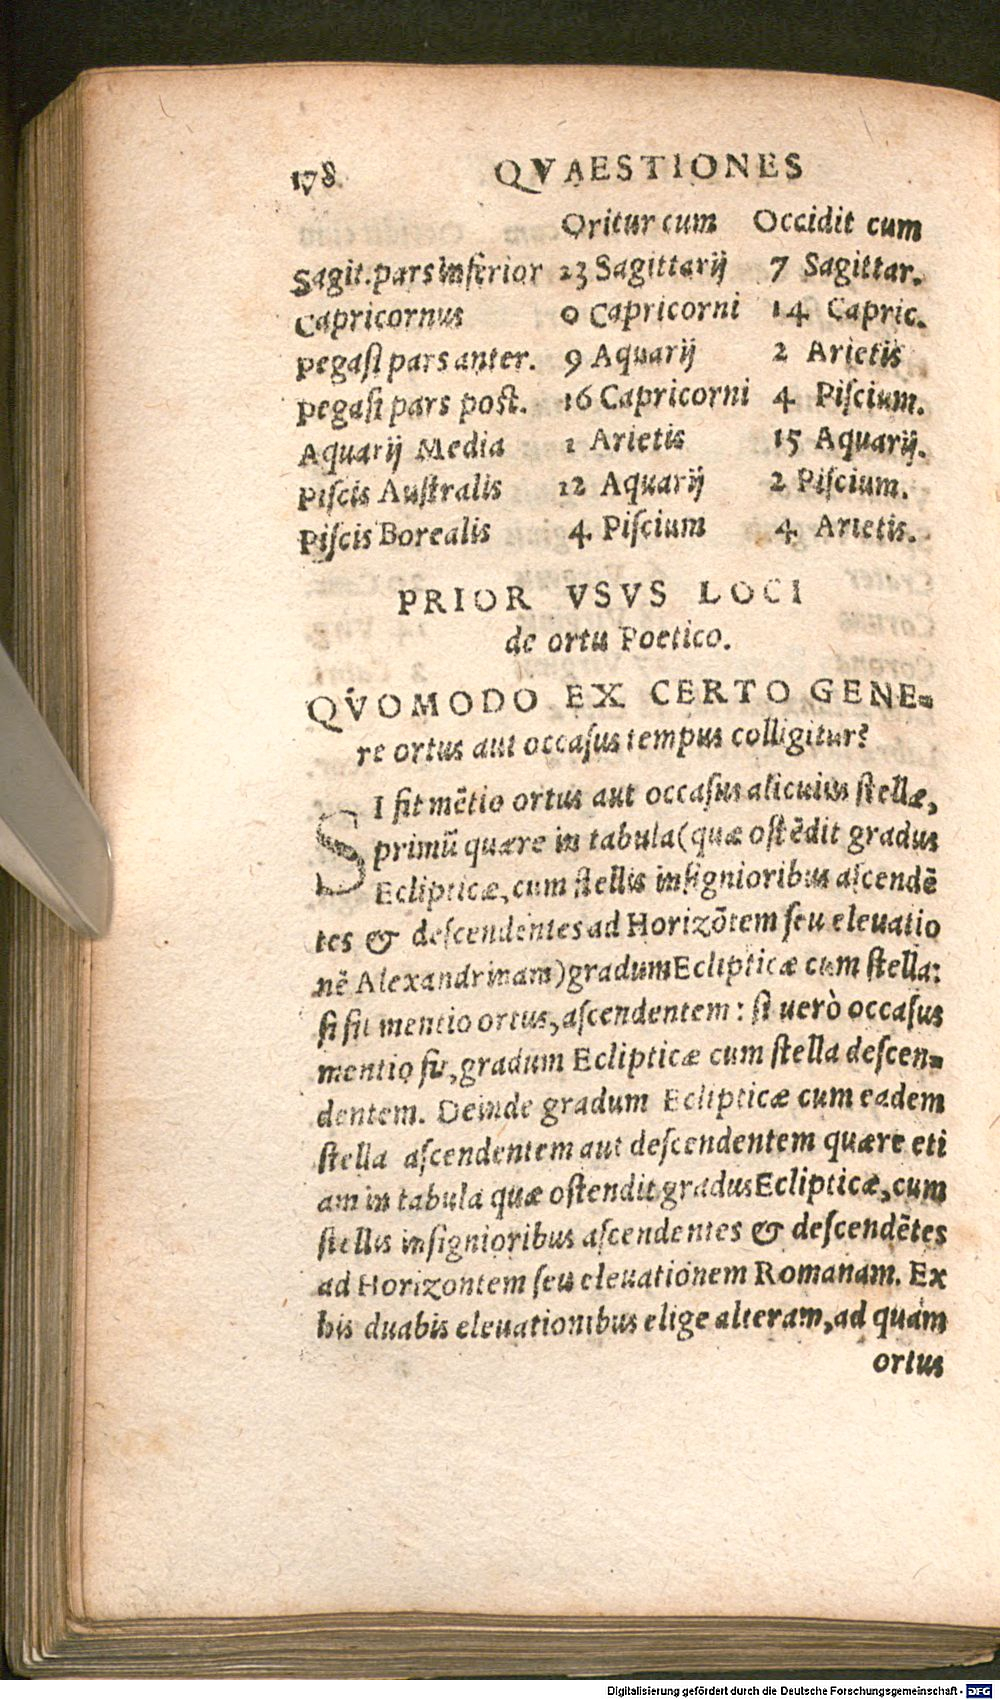 178 QVAESTIONES
Oritur cum Occidit cum
Sagit. pars inferior 23 Sagittarij 7 Sagittar.
Capricornus 0 Capricorni 14 Capric.
Pegaſi pars anter. 9 Aquarij 2 Arietis
Pegaſi pars poſt. 16 Capricorni 4 Piſcium.
Aquarij Media 1 Arietis 15 Aquarij.
Piſcis Auſtralis 12 Aquarij 2 Piſcium.
Piſcis Borealis 4 Piſcium 4 Arietis.
PRIOR VSVS LOCI
de ortu Poetico.
QVOMODO EX CERTO GENE-
re ortus aut occaſus tempus colligitur?
SI fit mẽtio ortus aut occaſus alicuius ſtellæ,
primũ quære in tabula (quæ oſtẽdit gradus
Eclipticæ, cum ſtellis inſignioribus aſcendẽ
tes & deſcendentes ad Horizõtem ſeu eleuatio
nẽ Alexandrinam) gradum Eclipticæ cum ſtella:
ſi fit mentio ortus, aſcendentem: ſi uerò occaſus
mentio fit, gradum Eclipticæ cum ſtella deſcen-
dentem. Deinde gradum Eclipticæ cum eadem
ſtella aſcendentem aut deſcendentem quære eti
am in tabula quæ oſtendit gradus Eclipticæ, cum
ſtellis inſignioribus aſcendentes & deſcendẽtes
ad Horizontem ſeu eleuationem Romanam. Ex
his duabis eleuationibus elige alteram, ad quam
ortus
Digitalisierung gefördert durch die Deutsche Forschungsgemeinschaft - DFG